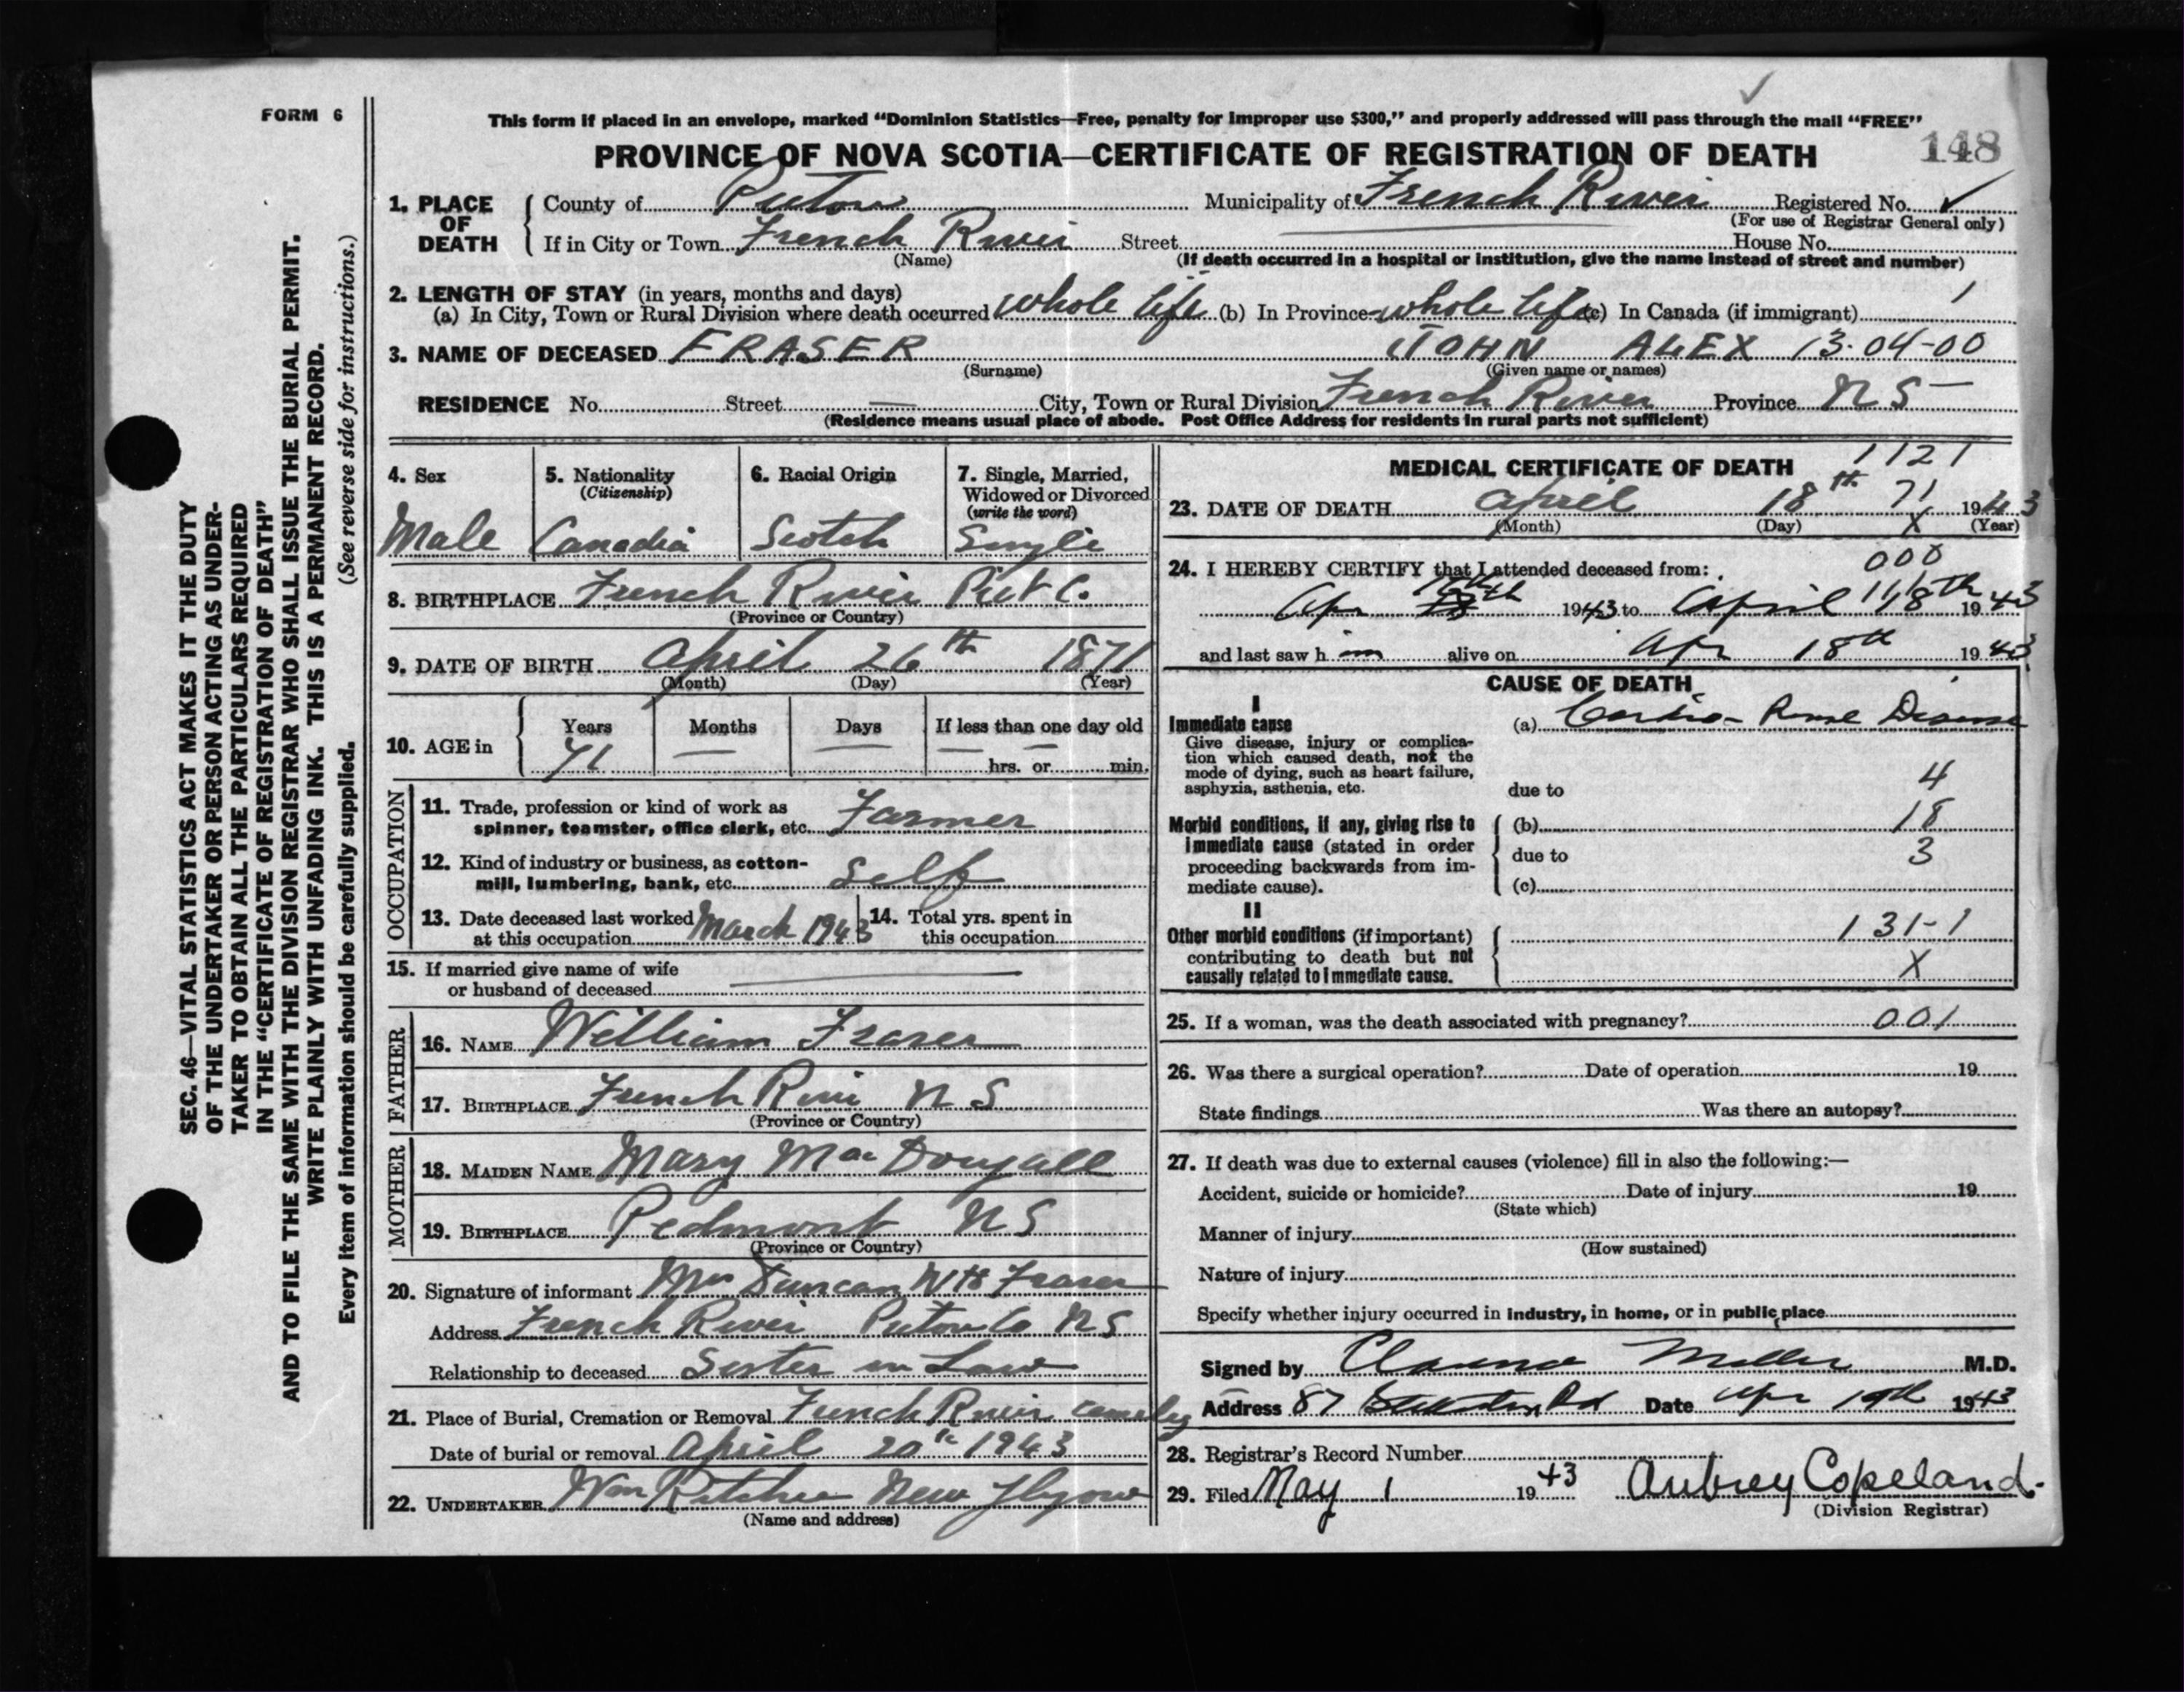 FORM 6
This form if placed in an envelope, marked “Dominion Statistics—Free, penalty for improper use $300,” and properly addressed will pass through the mail “FREE”
PROVINCE OF NOVA SCOTIA—CERTIFICATE OF REGISTRATION OF DEATH 148
1. PLACE OF DEATH County of Pictou Municipality of French River Registered No.
(For use of Registrar General only)
If in City or Town French River Street House No.
(Name) (If death occurred in a hospital or institution, give the name instead of street and number)
2. LENGTH OF STAY (in years, months and days)
(a) In City, Town or Rural Division where death occurred whole life (b) In Province whole life (c) In Canada (if immigrant) 1
3. NAME OF DECEASED FRASER JOHN ALEX 13-04-00
(Surname) (Given name or names)
RESIDENCE No. Street City, Town or Rural Division French River Province N S
(Residence means usual place of abode. Post Office Address for residents in rural parts not sufficient)
4. Sex
Male
5. Nationality
(Citizenship)
Canadia
6. Racial Origin
Scotch
7. Single, Married,
Widowed or Divorced
(write the word)
Single
8. BIRTHPLACE French River Pict C.
(Province or Country)
9. DATE OF BIRTH April 26th 1871
(Month) (Day) (Year)
10. AGE in Years Months Days If less than one day old
71 — — hrs. or min.
OCCUPATION
11. Trade, profession or kind of work as
spinner, teamster, office clerk, etc. Farmer
12. Kind of industry or business, as cotton-
mill, lumbering, bank, etc. Self
13. Date deceased last worked
at this occupation March 1943
14. Total yrs. spent in
this occupation
15. If married give name of wife
or husband of deceased
FATHER
16. NAME William Fraser
17. BIRTHPLACE French River N S
(Province or Country)
MOTHER
18. MAIDEN NAME Mary MacDougall
19. BIRTHPLACE Pedmont N S
(Province or Country)
20. Signature of informant Mrs Duncan Fraser
Address French River Pictou Co N S
Relationship to deceased Sister in Law
21. Place of Burial, Cremation or Removal French River
Date of burial or removal April 20th 1943
22. UNDERTAKER Wm Ritchie New
(Name and address)
MEDICAL CERTIFICATE OF DEATH 1121
23. DATE OF DEATH April 18th 71 1943
(Month) (Day) X (Year)
24. I HEREBY CERTIFY that I attended deceased from: 000
Apr 1943 to April 18th 1943
and last saw him alive on Apr 18th 1943
CAUSE OF DEATH
I
Immediate cause
Give disease, injury or complica-
tion which caused death, not the
mode of dying, such as heart failure,
asphyxia, asthenia, etc.
(a) Cardio-Renal Disease
due to 4
Morbid conditions, if any, giving rise to
immediate cause (stated in order
proceeding backwards from im-
mediate cause).
(b) 18
due to 3
(c)
II
Other morbid conditions (if important)
contributing to death but not
causally related to immediate cause.
131-1
X
25. If a woman, was the death associated with pregnancy? 001
26. Was there a surgical operation? Date of operation 19
State findings Was there an autopsy?
27. If death was due to external causes (violence) fill in also the following:—
Accident, suicide or homicide? Date of injury 19
(State which)
Manner of injury
(How sustained)
Nature of injury
Specify whether injury occurred in industry, in home, or in public place
Signed by Clarence Miller M.D.
Address 87 Rd Date Apr 19th 1943
28. Registrar's Record Number
29. Filed May 1 1943 Aubrey Copeland.
(Division Registrar)
SEC. 46—VITAL STATISTICS ACT MAKES IT THE DUTY
OF THE UNDERTAKER OR PERSON ACTING AS UNDER-
TAKER TO OBTAIN ALL THE PARTICULARS REQUIRED
IN THE “CERTIFICATE OF REGISTRATION OF DEATH”
AND TO FILE THE SAME WITH THE DIVISION REGISTRAR WHO SHALL ISSUE THE BURIAL PERMIT.
WRITE PLAINLY WITH UNFADING INK. THIS IS A PERMANENT RECORD.
Every item of information should be carefully supplied. (See reverse side for instructions.)